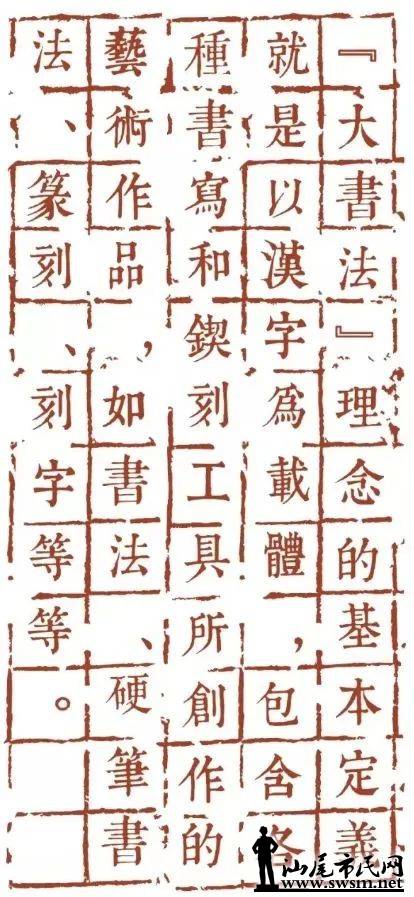 『大書法』理念的基本定義
就是以漢字為載體，包含各
種書寫和鍥刻工具所創作的
藝術作品，如書法、硬筆書
法、篆刻、刻字等等。
汕尾市民网
www.swsm.net